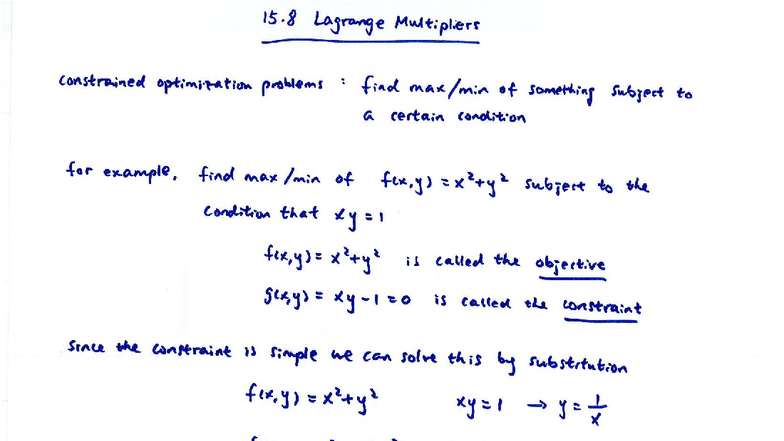 15.8 Lagrange Multipliers
constrained optimization problems : find max/min of something subject to
a certain condition
for example, find max/min of f(x,y) = x²+y² subject to the
condition that xy = 1
f(x,y) = x²+y² is called the objective
g(x,y) = xy-1=0 is called the constraint
since the constraint is simple we can solve this by substitution
f(x,y) = x²+y² xy=1 → y = 1/x